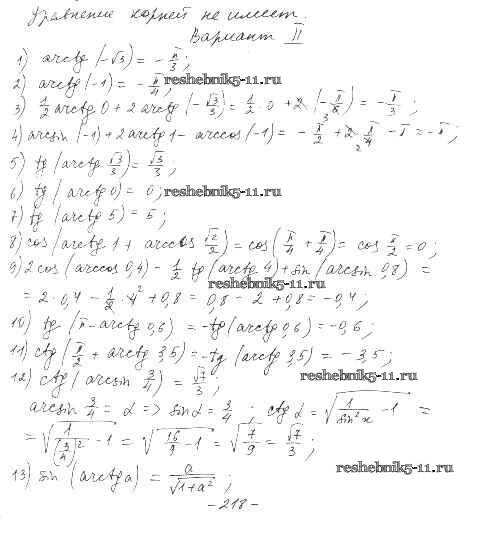 Уравнение корней не имеет.
Вариант II
1) arctg(-√3) = -π/3;
2) arctg(-1) = -π/4;
reshebnik5-11.ru
3) 1/2 arctg 0 + 2 arctg(-√3/3) = 1/2 · 0 + 2 · (-π/6) = -π/3;
4) arcsin(-1) + 2 arctg 1 - arccos(-1) = -π/2 + 2 π/4 - π = -π;
5) tg(arctg √3/3) = √3/3;
6) tg(arctg 0) = 0;
reshebnik5-11.ru
7) tg(arctg 5) = 5;
8) cos(arctg 1 + arccos √2/2) = cos(π/4 + π/4) = cos π/2 = 0;
9) 2 cos(arccos 0,4) - 1/2 tg(arctg 4) + sin(arcsin 0,8) =
reshebnik5-11.ru
= 2 · 0,4 - 1/2 · 4 + 0,8 = 0,8 - 2 + 0,8 = -0,4;
10) tg(π - arctg 0,6) = -tg(arctg 0,6) = -0,6;
11) ctg(π/2 + arctg 3,5) = -tg(arctg 3,5) = -3,5;
12) ctg(arcsin 3/4) = √7/3;
reshebnik5-11.ru
arcsin 3/4 = α => sin α = 3/4; ctg α = √(1/sin²x - 1) =
= √(1/(3/4)² - 1) = √(16/9 - 1) = √(7/9) = √7/3;
13) sin(arctg a) = a/√(1+a²);
reshebnik5-11.ru
- 218 -